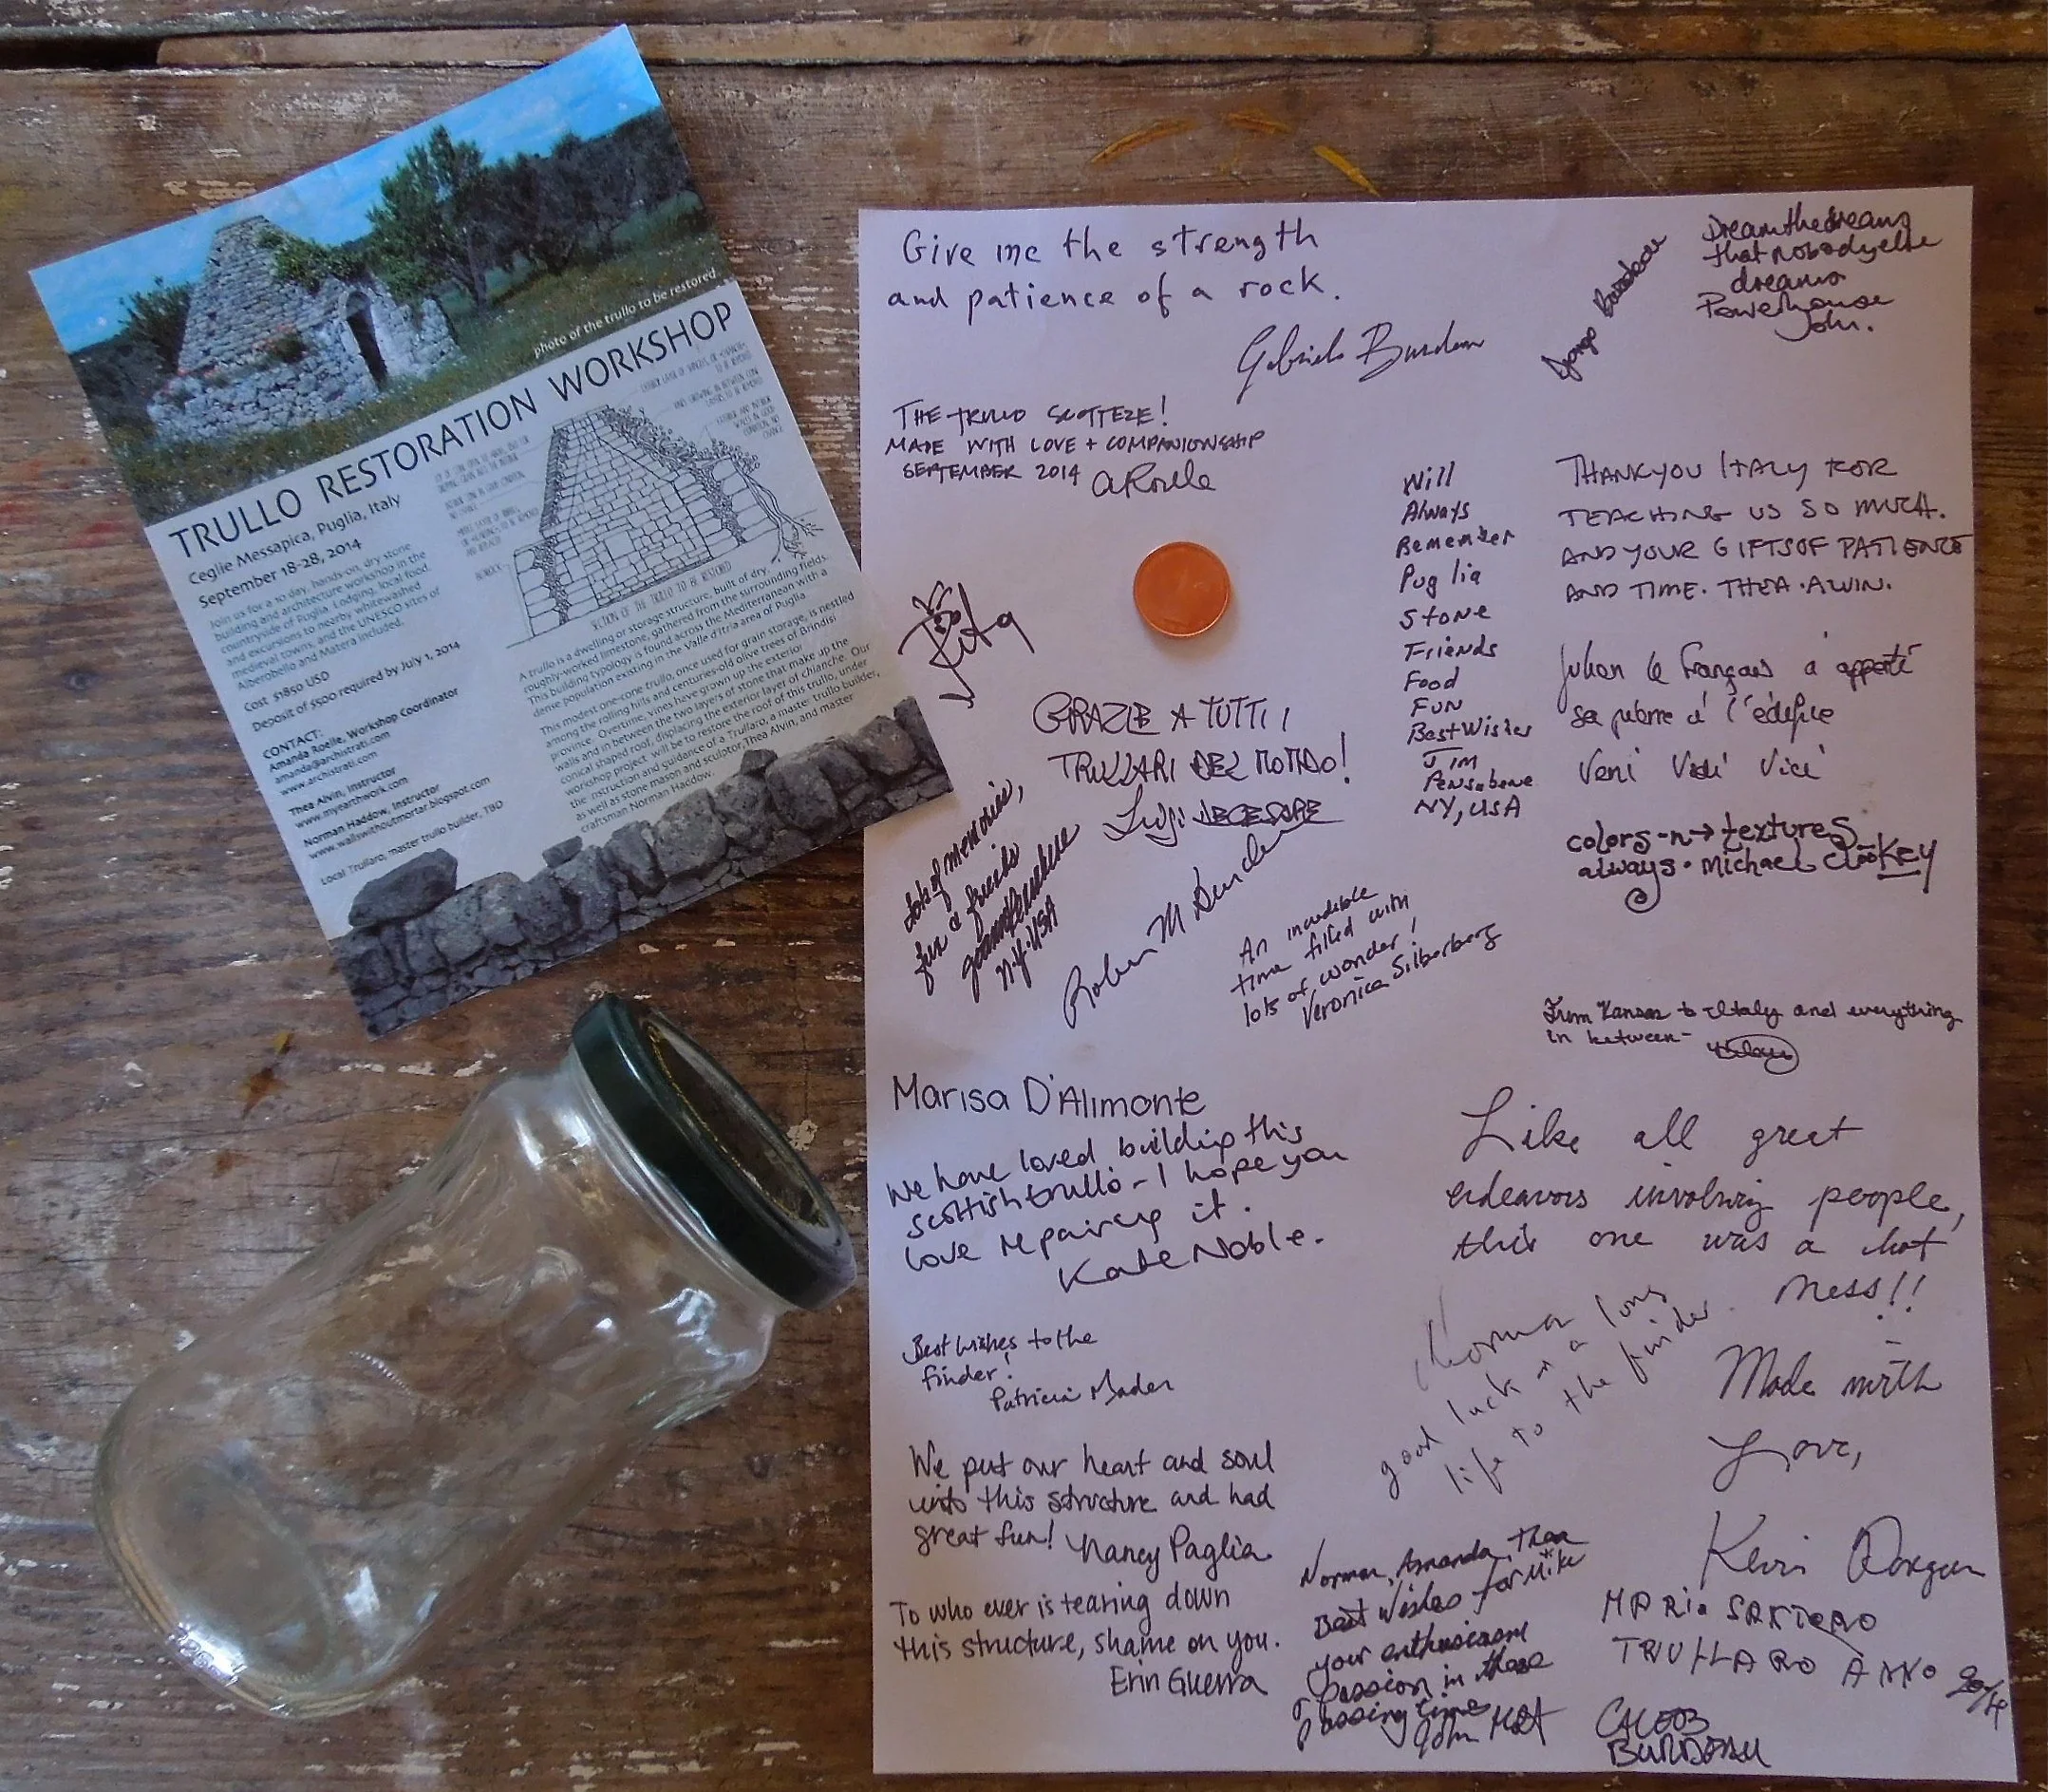 photo of the trullo to be restored
TRULLO RESTORATION WORKSHOP
Ceglie Messapica, Puglia, Italy
September 18-28, 2014
Join us for a 10 day, hands-on, dry stone
building and architecture workshop in the
countryside of Puglia. Lodging, local food,
and excursions to nearby whitewashed
medieval towns, and the UNESCO sites of
Alberobello and Matera included.
Cost $1850 USD
Deposit of $500 required by July 1, 2014
CONTACT:
Amanda Roelle, Workshop Coordinator
amanda@archistrati.com
www.archistrati.com
Thea Alvin, Instructor
www.myearthwork.com
Norman Haddow, Instructor
www.wallswithoutmortar.blogspot.com
Local Trullaro, master trullo builder, TBD
BEDROCK
SECTION OF THE TRULLO TO BE RESTORED
A trullo is a dwelling or storage structure, built of dry,
roughly-worked limestone, gathered from the surrounding fields.
This building typology is found across the Mediterranean with a
dense population existing in the Valle d'Itria area of Puglia.
This modest one-cone trullo, once used for grain storage, is nestled
among the rolling hills and centuries-old olive trees of Brindisi
province. Overtime, vines have grown up the exterior
walls and in between the two layers of stone that make up the
conical shaped roof, displacing the exterior layer of chianche. Our
workshop project will be to restore the roof of this trullo, under
the instruction and guidance of a Trullaro, a master trullo builder,
as well as stone mason and sculptor Thea Alvin, and master
craftsman Norman Haddow.
Give me the strength
and patience of a rock.
Gabriele Burdeau
Django Burdeau
Dream the dreams
that nobody else
dreams
Powerhouse
John.
THE TRULLO SCOTTEZE!
MADE WITH LOVE + COMPANIONSHIP
SEPTEMBER 2014 aRoelle
Will
Always
Remember
Puglia
Stone
Friends
Food
FUN
Best Wishes
JIM
Pensabene
NY, USA
THANK YOU ITALY FOR
TEACHING US SO MUCH.
AND YOUR GIFTS OF PATIENCE
AND TIME. THEA ALVIN.
Vita
GRAZIE A TUTTI I
TRULLARI DEL MONDO!
Luigi
Julien le Français a apporté
sa pierre à l'édifice
Veni Vidi Vici
colors -n→ textures
always · michael clookey
lots of memories,
fun & friends
N.Y. USA
Robin M
An incredible
time filled with
lots of wonder!
Veronica Silberberg
From Kansas to Italy and everything
in between-
Marisa D'Alimonte
We have loved building this
scottish trullo - I hope you
love repairing it.
Kate Noble.
Like all great
endeavors involving people,
this one was a hot
mess!!
Made with
Love,
Kevin Dongan
Norman
good luck in a long
life to the finder.
Best Wishes to the
finder!
Patricia Mader
We put our heart and soul
into this structure and had
great fun! Nancy Paglia
To who ever is tearing down
this structure, shame on you.
Erin Guerra
Norman, Amanda, Thea
Best Wishes for Mike
your enthusiasm
& passion in these
passing times
John Holt
MARIO SANTORO
TRULLARO ANNO 2014
CALEB
BURDEAU